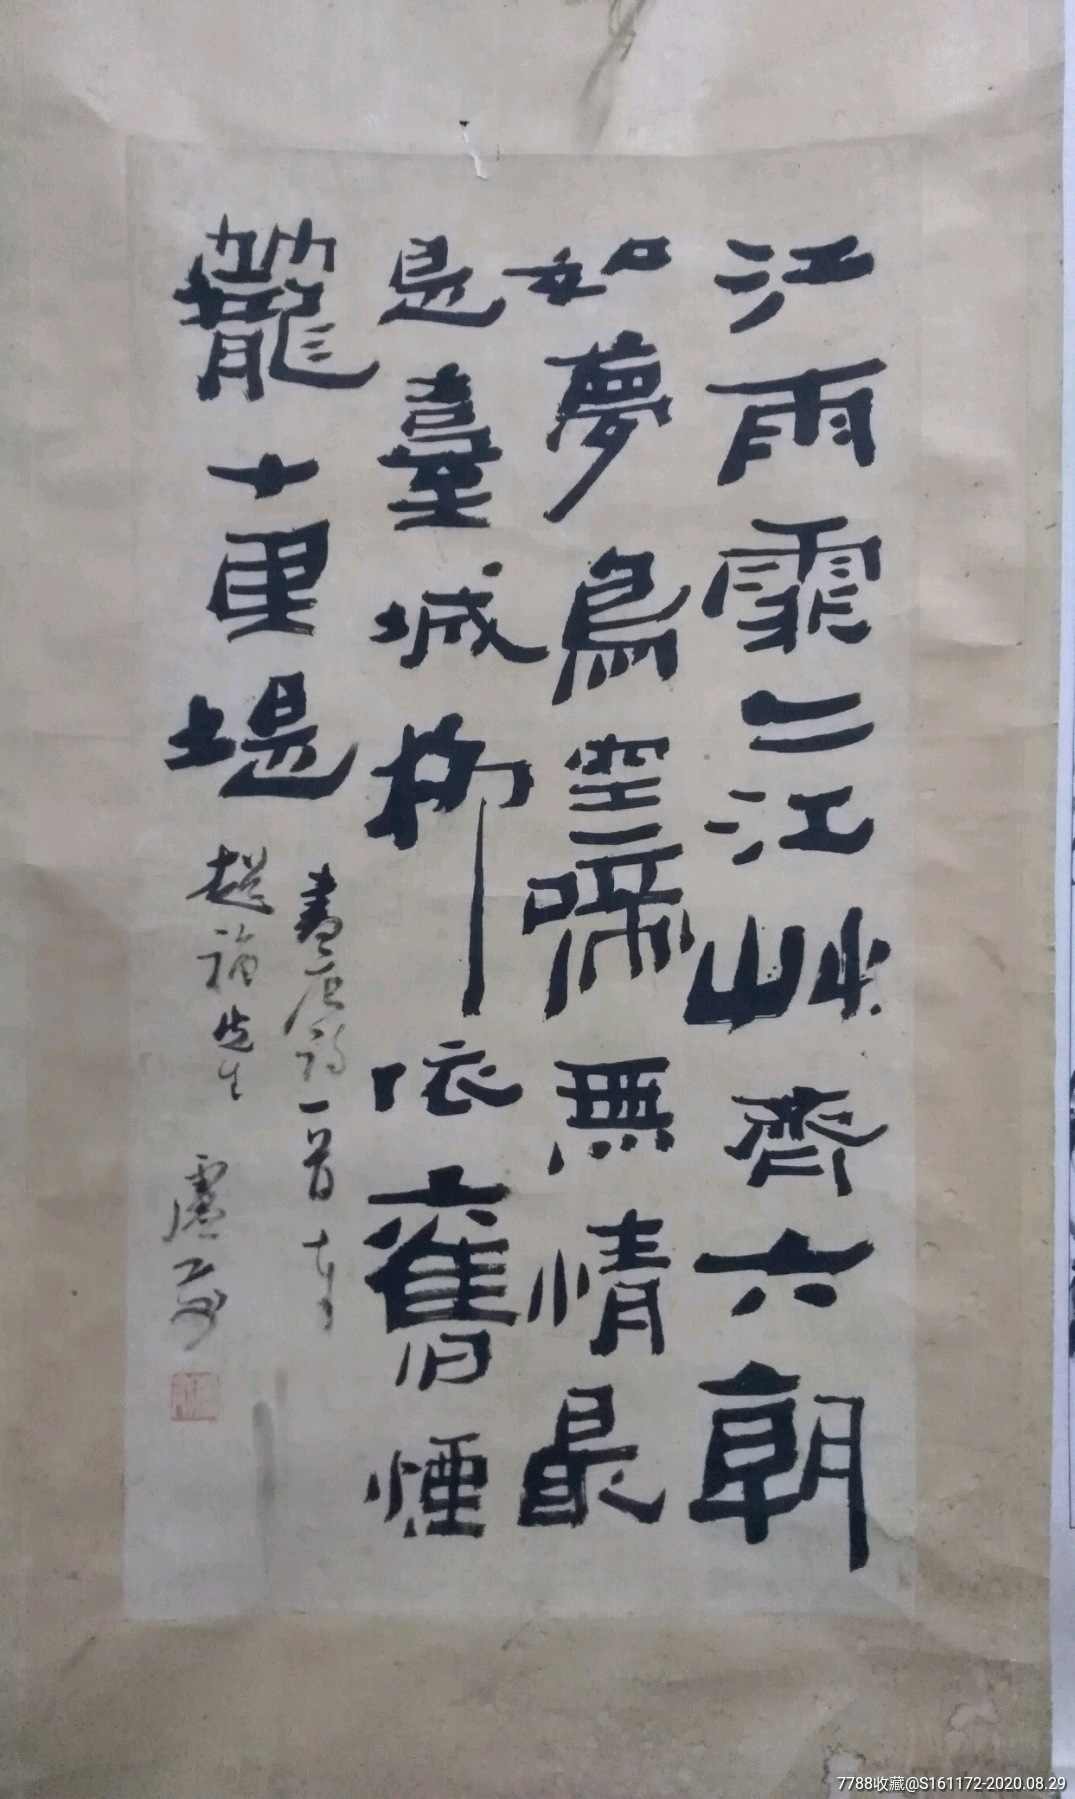 江雨霏〻江艸齊六朝
如夢鳥空啼無情最
是臺城柳依舊煙
籠十里堤
書唐詩一首奉
先生
盧
7788收藏@S161172-2020.08.29